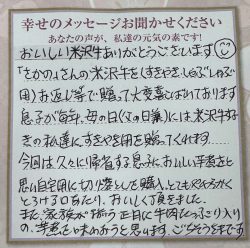 幸せのメッセージお聞かせください
あなたの声が、私達の元気の素です!
おいしい米沢牛ありがとうございます
「さかの」さんの米沢牛(すきやき・しゃぶしゃぶ
用)お返し等で贈って大変喜ばれております
息子が毎年、母の日(父の日兼)には、米沢牛好
きの私達にすきやき用を贈ってくれます
今回は久々に帰省する息子においしい芋煮をと
思い自宅用に切り落としを購入、とてもやわらかく
とろける口あたり、おいしく頂きました。
また、家族が揃う正月に牛肉たっぷり入り
の芋煮をいただこうと思います。ごちそうさまです